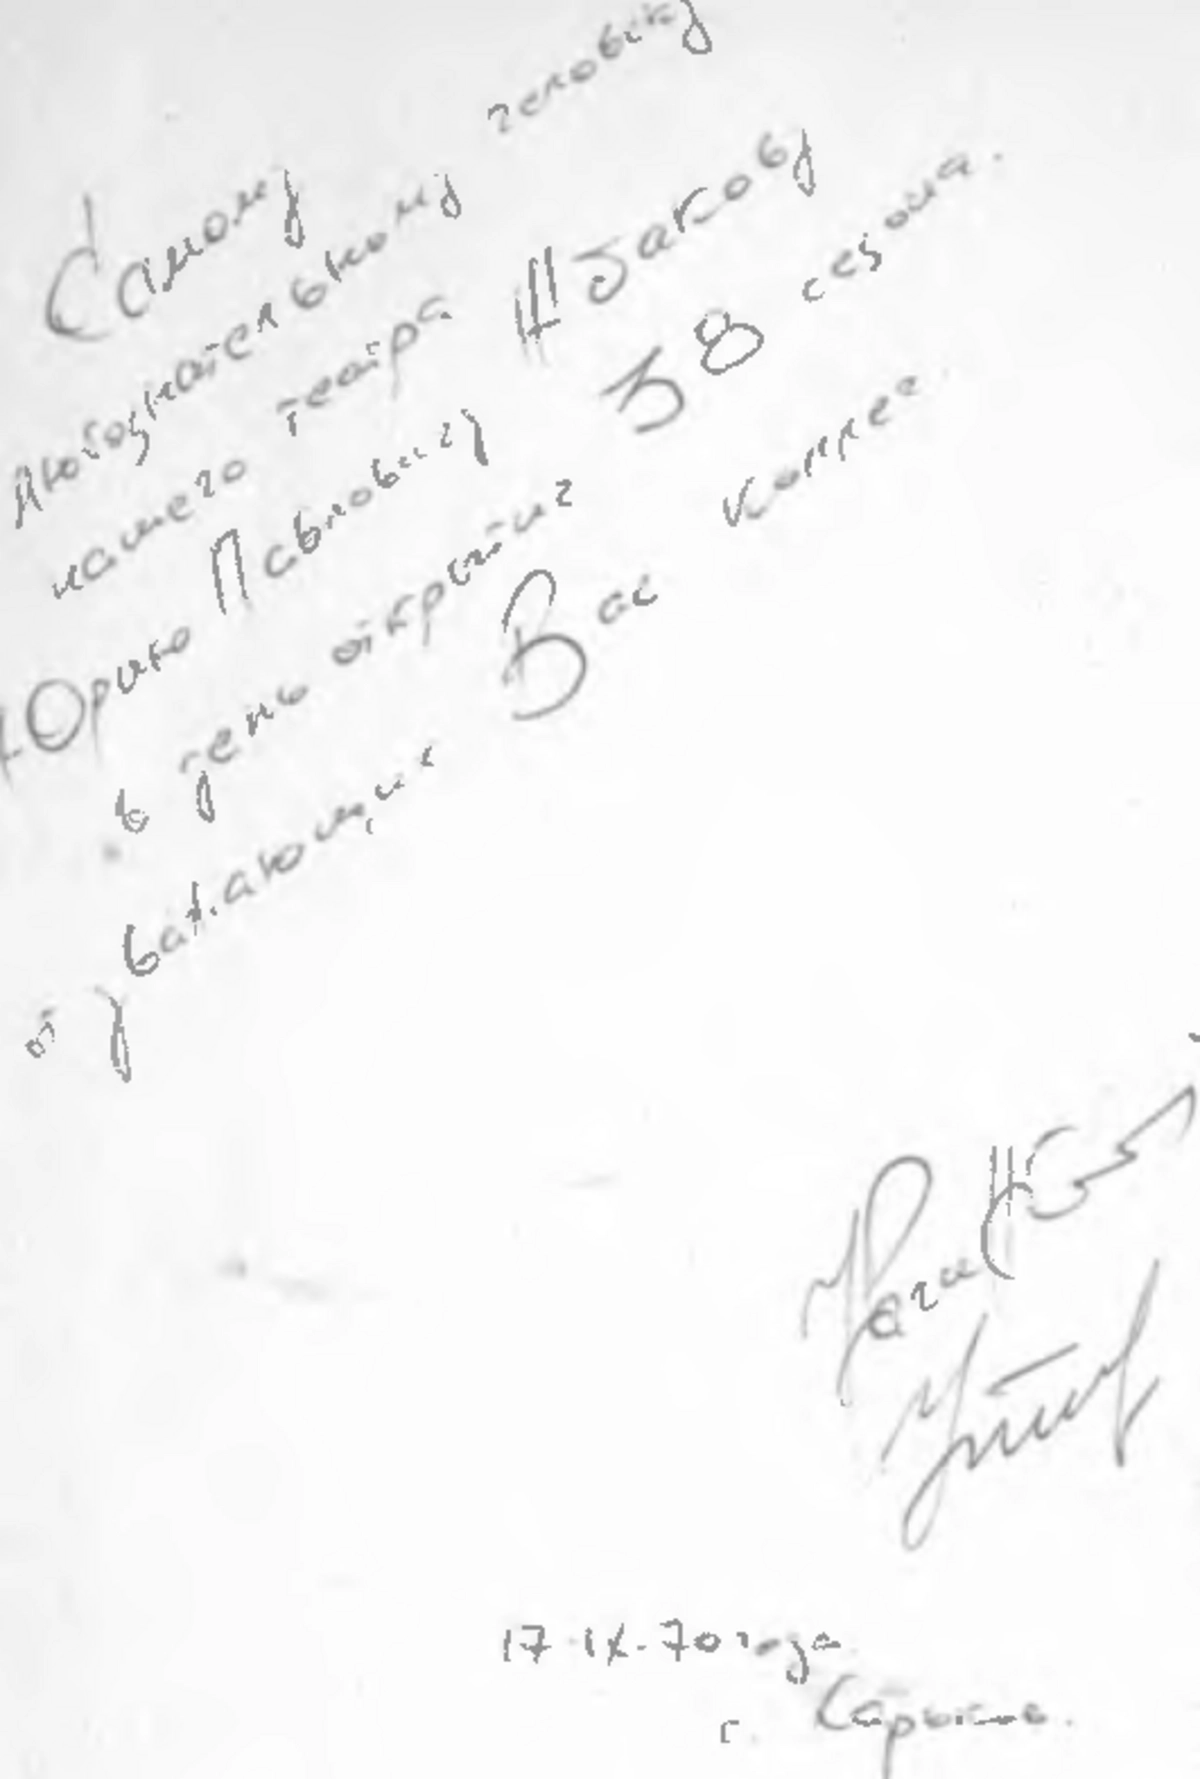 Самому
любознательному человеку
нашего театра
Юрию Павловичу Жакову
в день открытия 38 сезона.
от уважающих Вас коллег
17.IX.70 года
г.